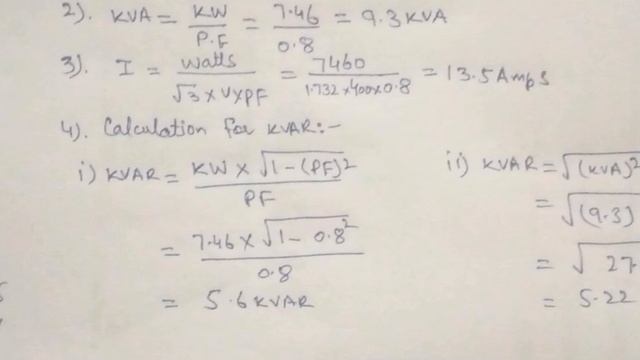 2). KVA = KW / P.F = 7.46 / 0.8 = 9.3 KVA
3). I = Watts / √3 x V x PF = 7460 / 1.732 x 400 x 0.8 = 13.5 Amps
4). Calculation for KVAR:-
i) KVAR = KW x √1 - (PF)² / PF
= 7.46 x √1 - 0.8² / 0.8
= 5.6 KVAR
ii) KVAR = √(KVA)²
= √(9.3)
= √27
= 5.22